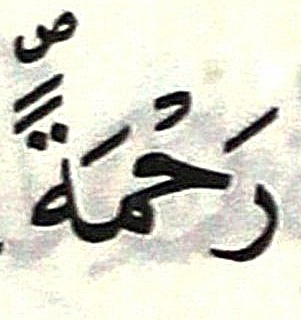 رَحْمَةًۭ ص